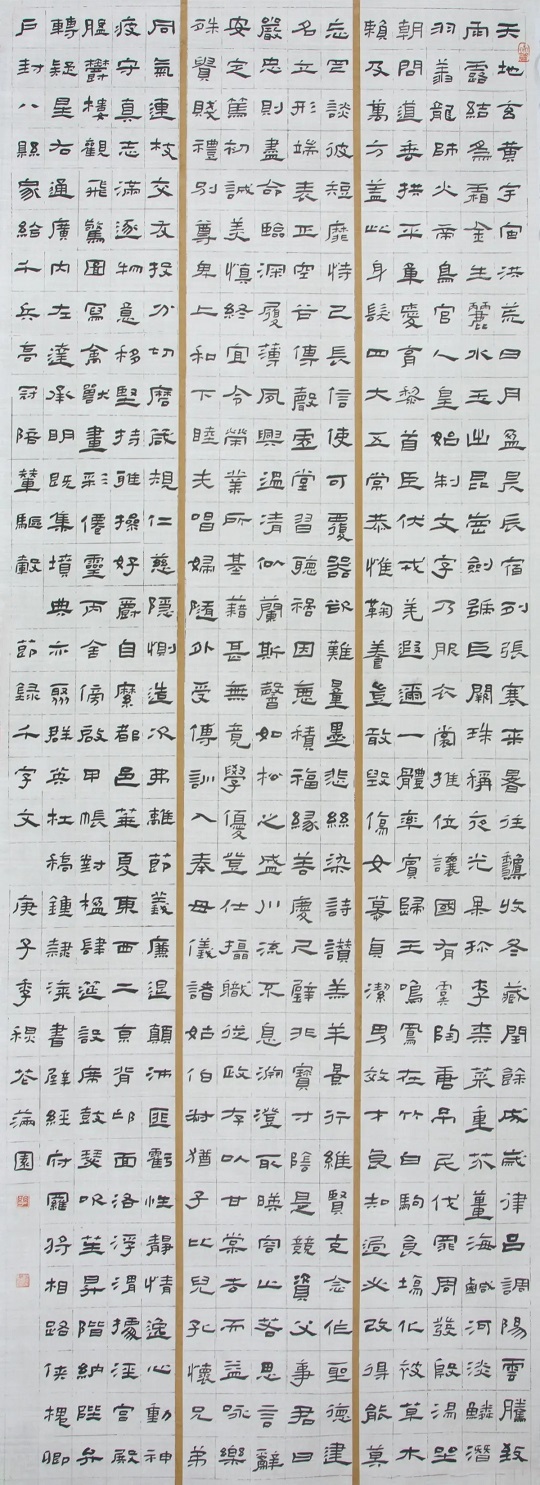 天地玄黃宇宙洪荒日月盈昃辰宿列張寒來暑往龝收冬藏閏餘成歲律呂調陽雲騰致
雨露結為霜金生麗水玉出昆崗劍號巨闕珠稱夜光果珍李柰菜重芥薑海鹹河淡鱗潛
羽翔龍師火帝鳥官人皇始制文字乃服衣裳推位讓國有虞陶唐弔民伐罪周發殷湯坐
朝問道垂拱平章愛育黎首臣伏戎羌遐邇一體率賓歸王鳴鳳在竹白駒食場化被草木
賴及萬方蓋此身髮四大五常恭惟鞠養豈敢毀傷女慕貞潔男效才良知過必改得能莫
忘罔談彼短靡恃己長信使可覆器欲難量墨悲絲染詩讚羔羊景行維賢克念作聖德建
名立形端表正空谷傳聲虛堂習聽禍因惡積福緣善慶尺璧非寶寸陰是競資父事君曰
嚴忠則盡命臨深履薄夙興溫凊似蘭斯馨如松之盛川流不息淵澄取暎容止若思言辭
安定篤初誠美慎終宜令榮業所基藉甚無竟學優登仕攝職從政存以甘棠去而益詠樂
殊貴賤禮別尊卑上和下睦夫唱婦隨外受傅訓入奉母儀諸姑伯叔猶子比兒孔懷兄弟
同氣連枝交友投分切磨箴規仁慈隱惻造次弗離節義廉退顛沛匪虧性靜情逸心動神
疲守真志滿逐物意移堅持雅操好爵自縻都邑華夏東西二京背邙面洛浮渭據涇宮殿
盤鬱樓觀飛驚圖寫禽獸畫彩僊靈丙舍傍啟甲帳對楹肆筵設席鼓瑟吹笙昇階納陛弁
轉疑星右通廣內左達承明既集墳典亦聚群英杜稿鍾隸漆書壁經府羅將相路俠槐卿
戶封八縣家給千兵高冠陪輦驅轂 節錄千字文 庚子季花滿園